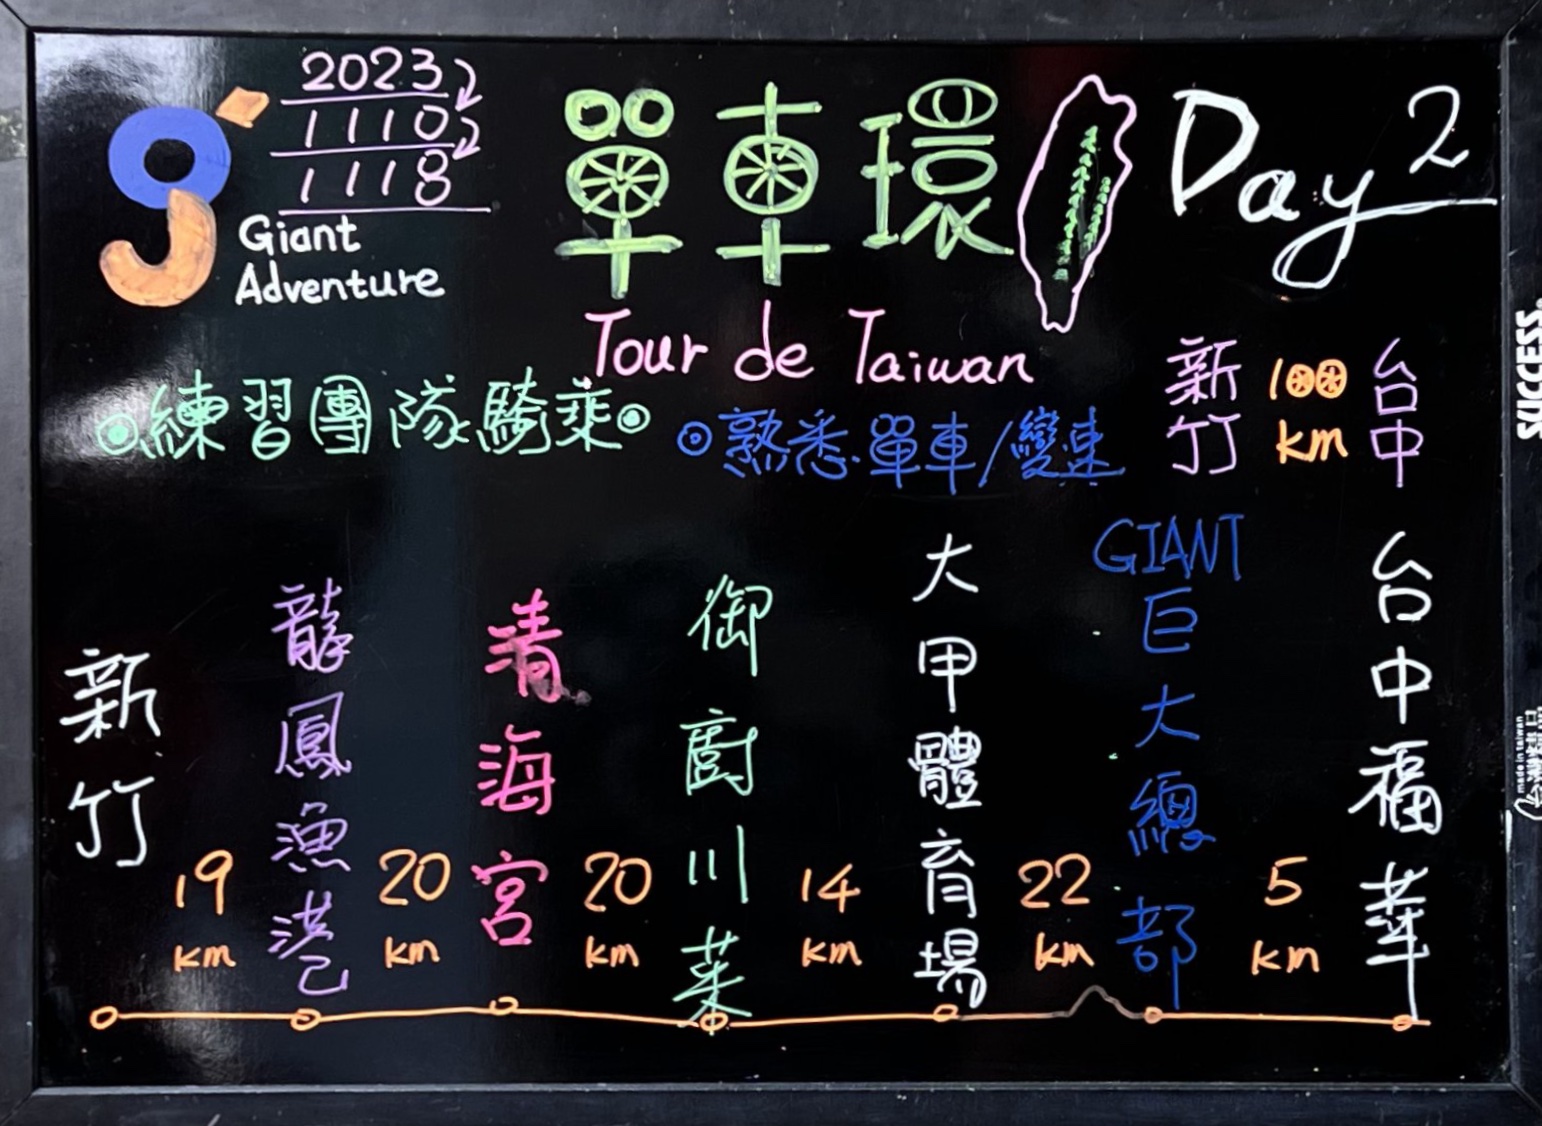 2023
1110
1118
Giant
Adventure
單車環
Day 2
Tour de Taiwan
◎練習團隊騎乘◎
◎熟悉單車/變速
新竹
100
km
台中
新竹
19
km
龍鳳漁港
20
km
清海宮
20
km
御廚川菜
14
km
大甲體育場
22
km
GIANT
巨大總部
5
km
台中福華
SUCCESS
made in taiwan